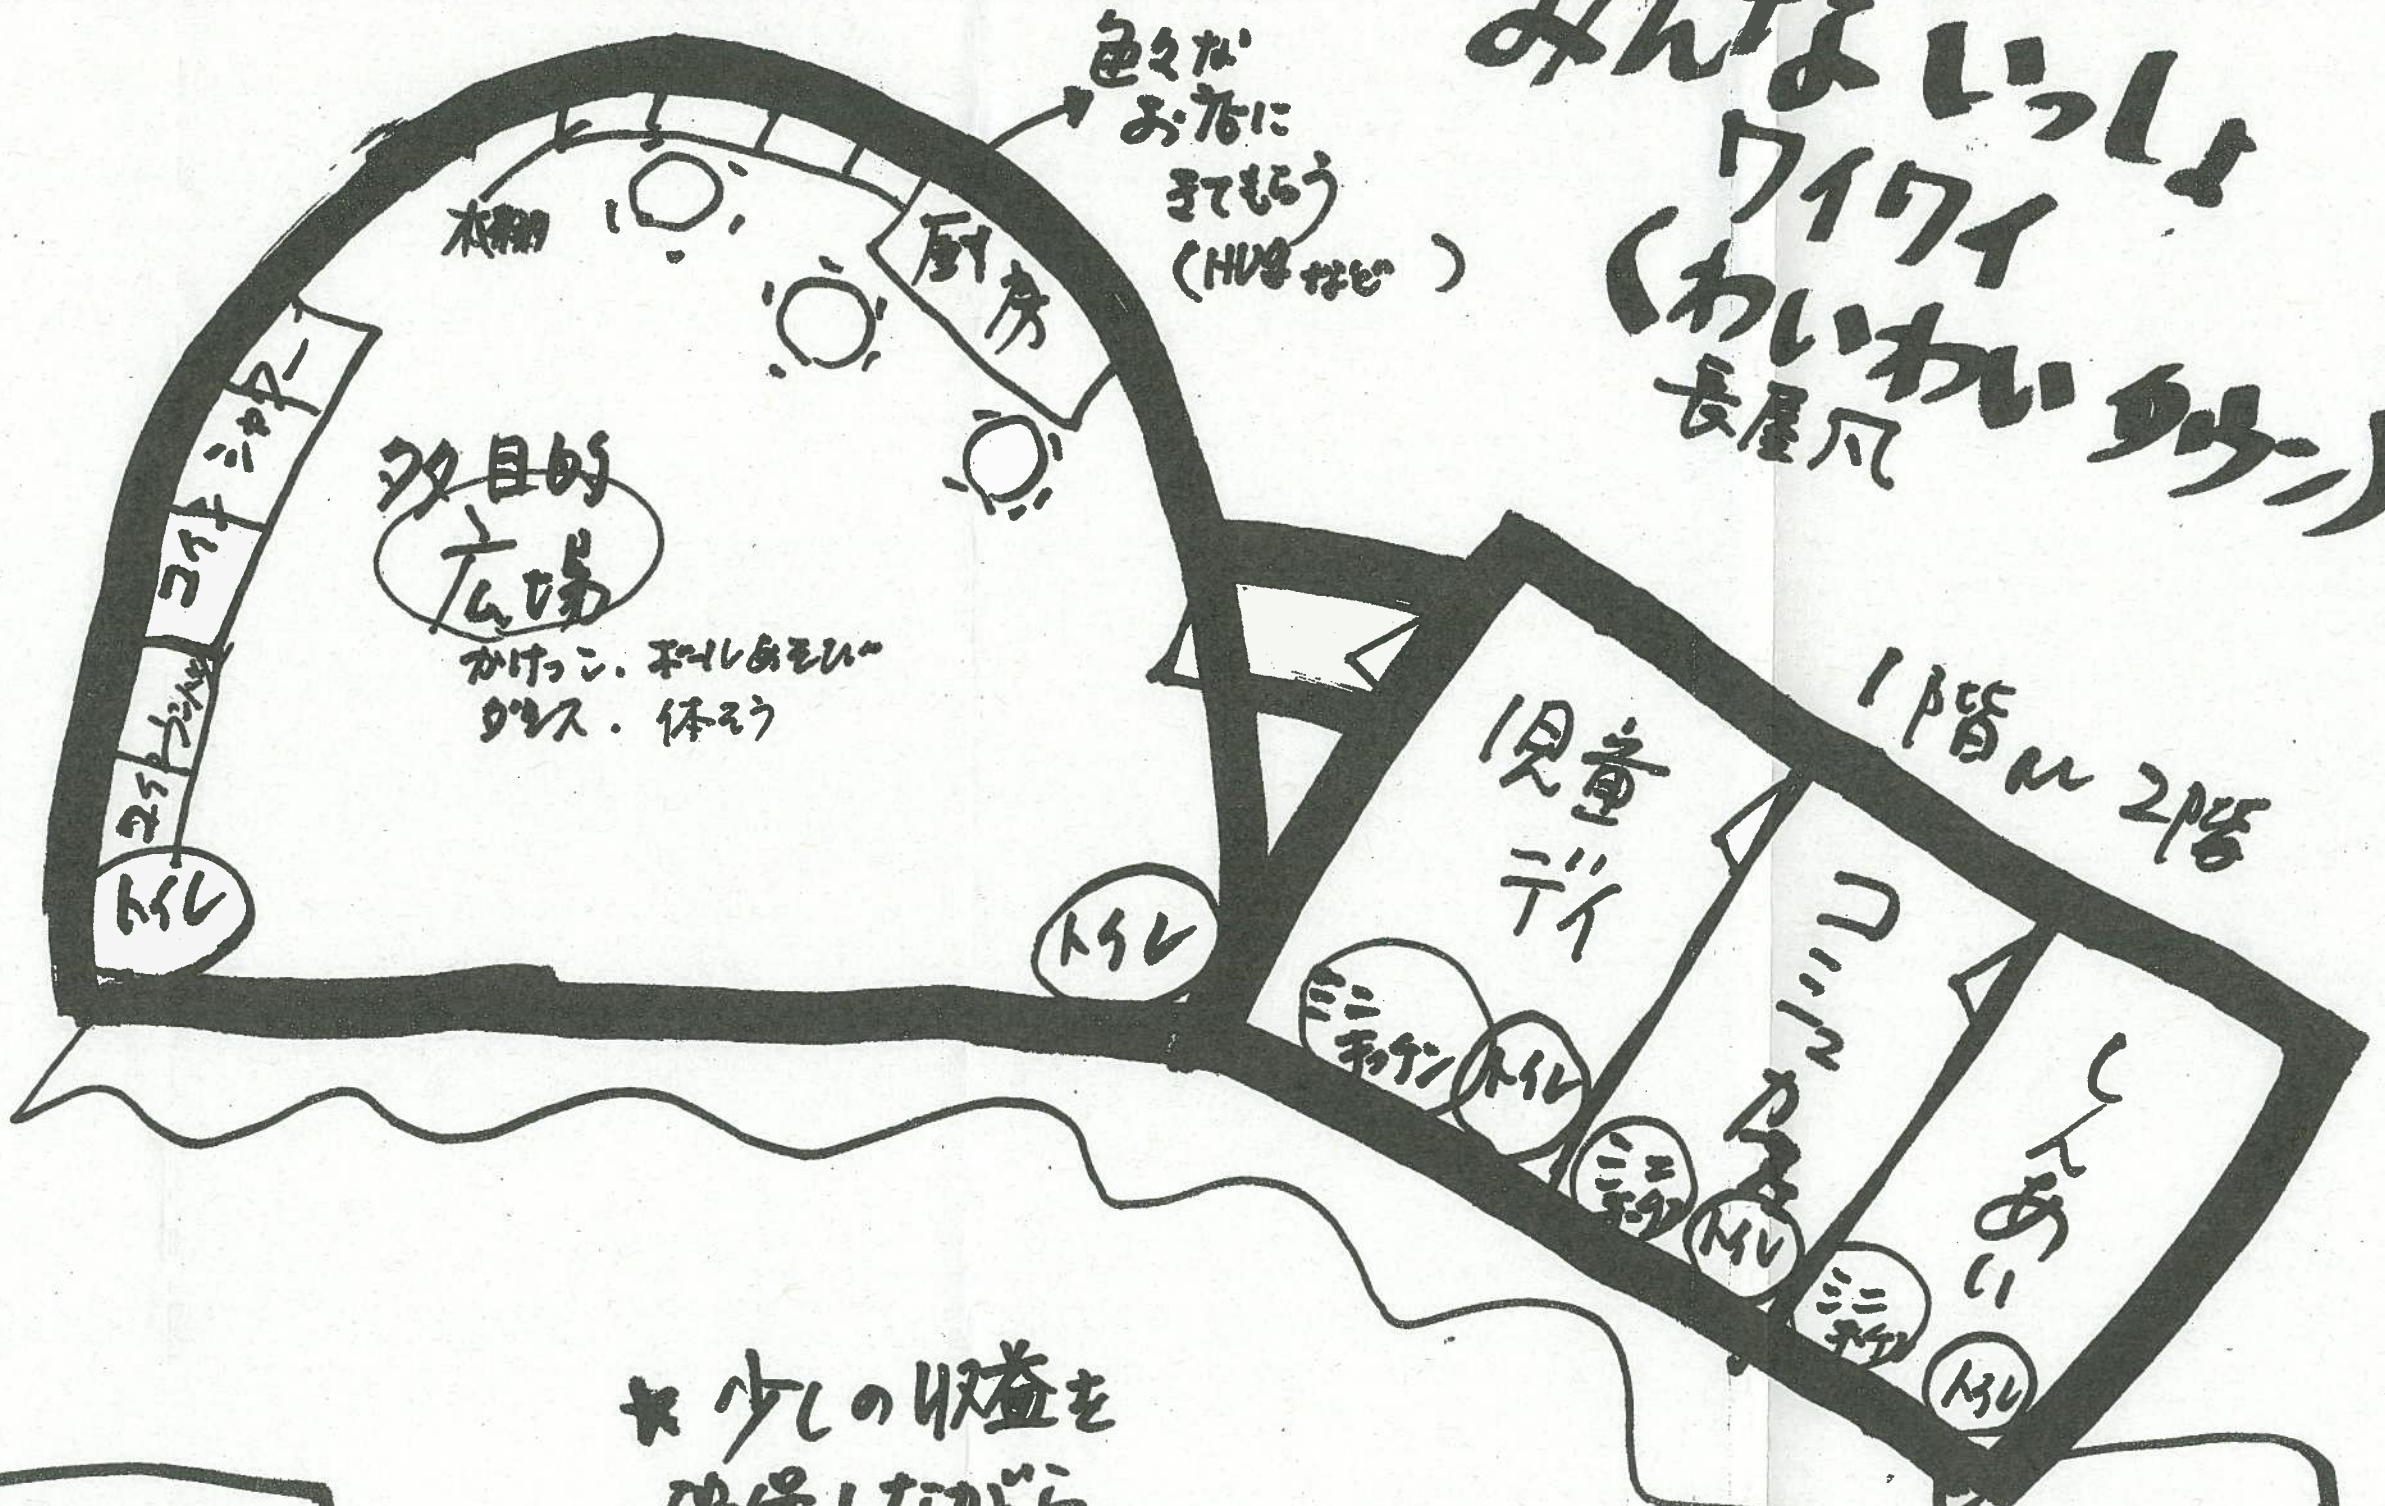 みんないっしょ
ワイワイ
(わいわいタウン)
長屋風
色々な
お店に
きてもらう
(など)
本棚
厨房
シャワー
コイン
ランドリー
トイレ
多目的
広場
かけっこ.ボールあそび
ダンス.体そう
トイレ
1階〜2階
児童
デイ
ミニ
キッチン
トイレ
コミュカフェ
ミニ
キッチン
トイレ
しんあい
ミニ
キッチン
トイレ
★少しの収益を
確保しながら